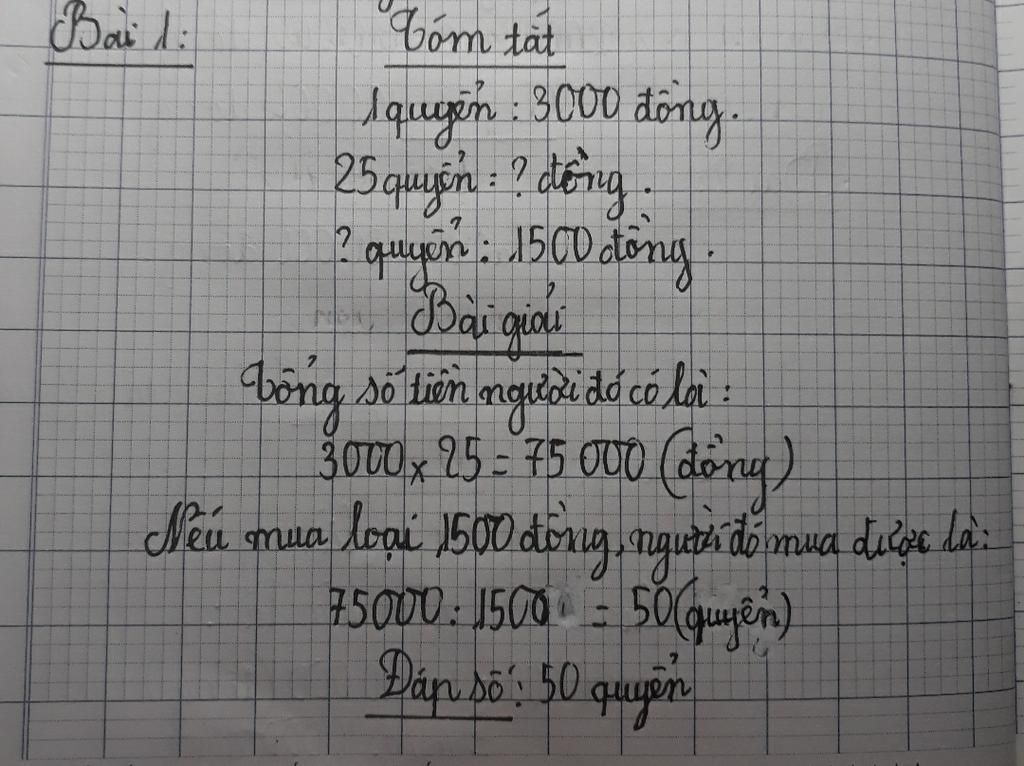 Bài 1: Tóm tắt
1 quyển : 3000 đồng.
25 quyển : ? đồng.
? quyển : 1500 đồng.
Bài giải
Tổng số tiền người đó có là :
3000 x 25 = 75 000 (đồng)
Nếu mua loại 1500 đồng, người đó mua được là :
75000 : 1500 = 50 (quyển)
Đáp số : 50 quyển